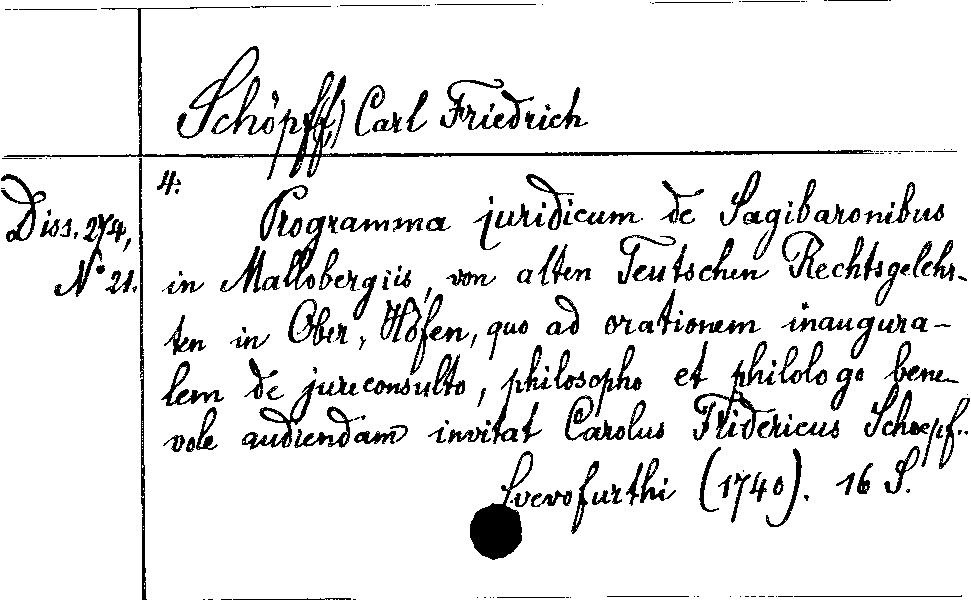 Schöpff, Carl Friedrich
4.
Diss. 274,
N° 21.
Programma juridicum de Sagibaronibus
in Mallobergiis, von alten Teutschen Rechtsgelehr-
ten in Ober, Höfen, quo ad orationem inaugura-
lem de jureconsulto, philosopho et philologo bene-
vole audiendam invitat Carolus Fridericus Schoepf..
Svevofurthi (1740). 16 S.